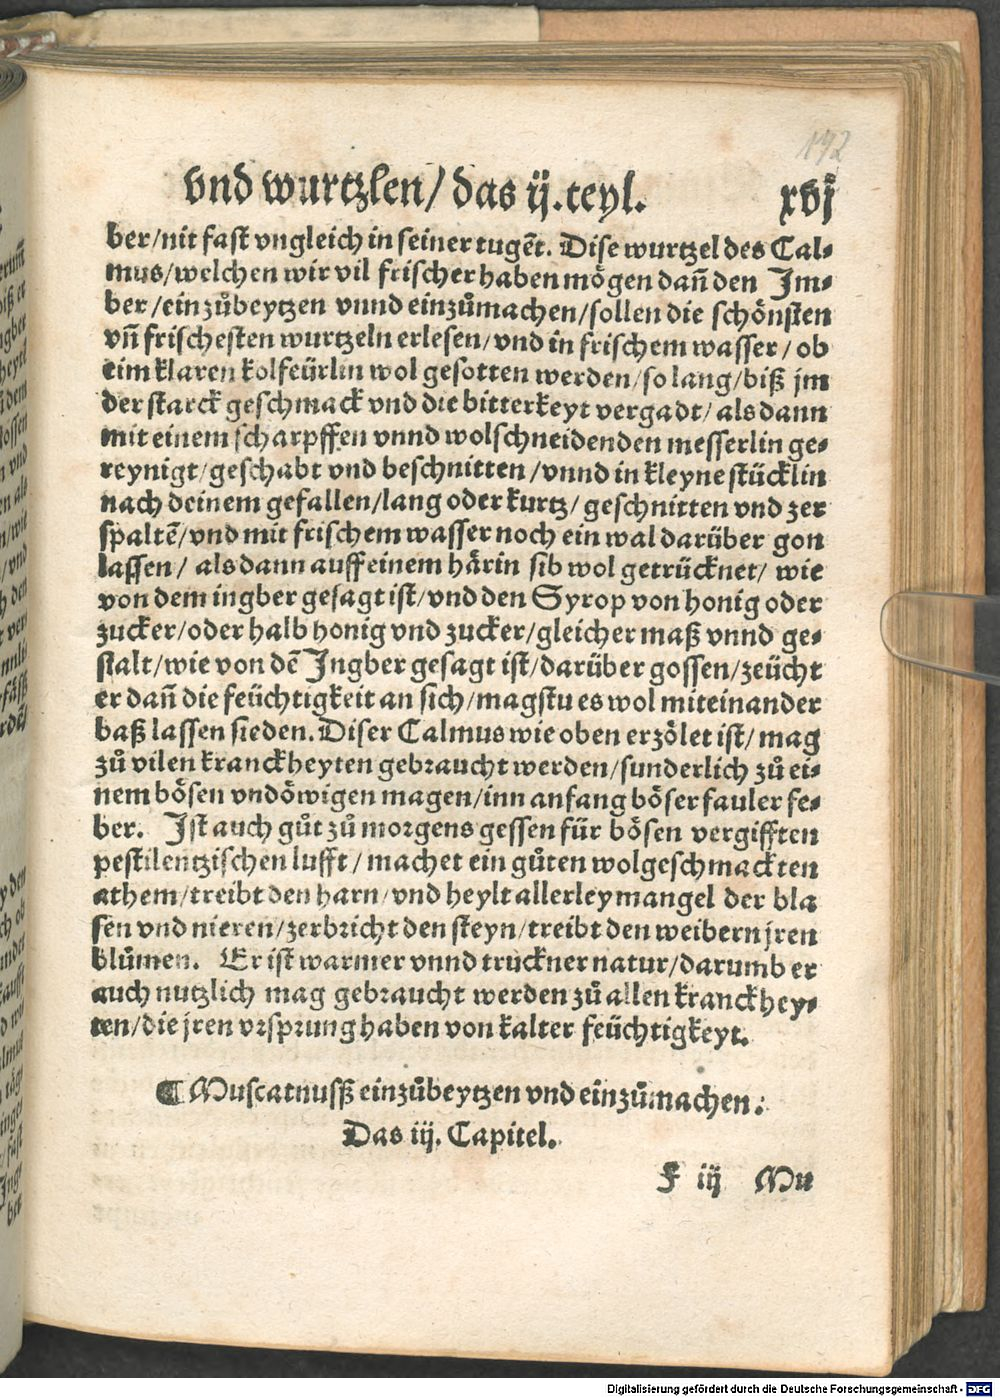 192
vnd wurtzlen/ das ij. teyl. xvj
ber/nit fast vngleich in seiner tugẽt. Dise wurtzel des Cal⸗
mus/welchen wir vil frischer haben mögen dañ den Im⸗
ber/einzůbeytzen vnnd einzůmachen/sollen die schönsten
vñ frischesten wurtzeln erlesen/vnd in frischem wasser/ ob
eim klaren kolfeürlin wol gesotten werden/so lang/biß jm
der starck geschmack vnd die bitterkeyt vergadt/ als dann
mit einem scharpffen vnnd wolschneidenden messerlin ge⸗
reynigt/geschabt vnd beschnitten/vnnd in kleyne stücklin
nach deinem gefallen/lang oder kurtz/ geschnitten vnd zer
spaltẽ/vnd mit frischem wasser noch ein wal darüber gon
lassen/ als dann auff einem härin sib wol getrücknet/ wie
von dem ingber gesagt ist/vnd den Syrop von honig oder
zucker/oder halb honig vnd zucker/gleicher maß vnnd ge⸗
stalt/wie von dẽ Ingber gesagt ist/darüber gossen/zeücht
er dañ die feüchtigkeit an sich/magstu es wol miteinander
baß lassen sieden. Diser Calmus wie oben erzölet ist/ mag
zů vilen kranckheyten gebraucht werden/sunderlich zů ei⸗
nem bösen vndöwigen magen/inn anfang böser fauler fe⸗
ber. Ist auch gůt zů morgens gessen für bösen vergifften
pestilentzischen lufft/ machet ein gůten wolgeschmackten
athem/treibt den harn/vnd heylt allerley mangel der bla
sen vnd nieren/zerbricht den steyn/treibt den weibern jren
blůmen. Er ist warmer vnnd truckner natur/darumb er
auch nutzlich mag gebraucht werden zů allen kranckhey⸗
ten/die jren vrsprung haben von kalter feüchtigkeyt.
¶ Muscatnusß einzůbeytzen vnd einzůmachen.
Das iij. Capitel.
F iij Mu
Digitalisierung gefördert durch die Deutsche Forschungsgemeinschaft - DFG